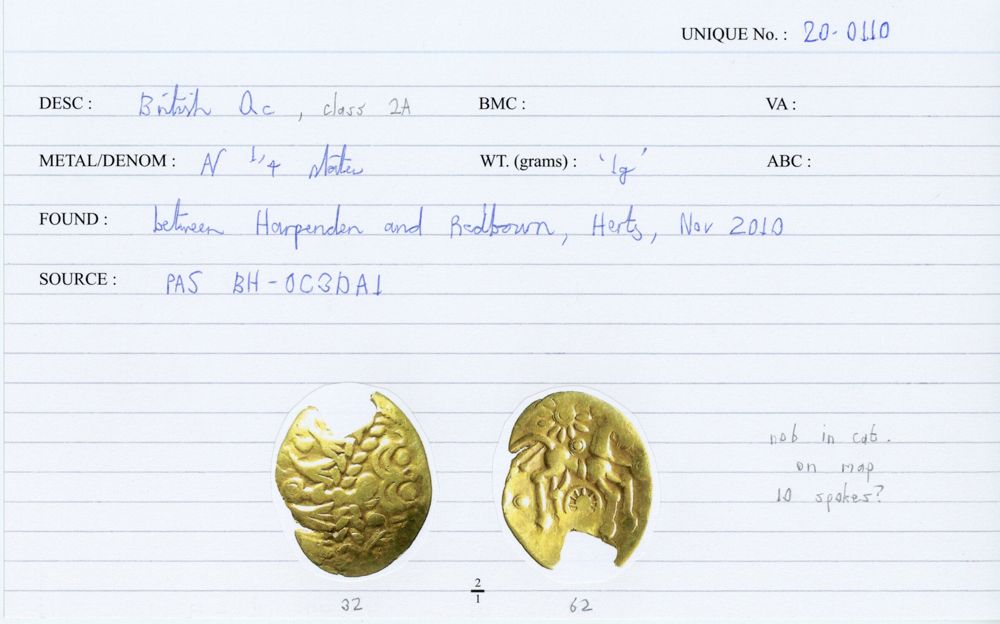 UNIQUE No. : 20-0110
DESC : British Qc, class 2A BMC : VA :
METAL/DENOM : N 1/4 stater WT. (grams) : '1g' ABC :
FOUND : between Harpenden and Redbourn, Herts, Nov 2010
SOURCE : PAS BH-0C3DA1
not in cat.
on map
10 spokes?
2
1
32 62